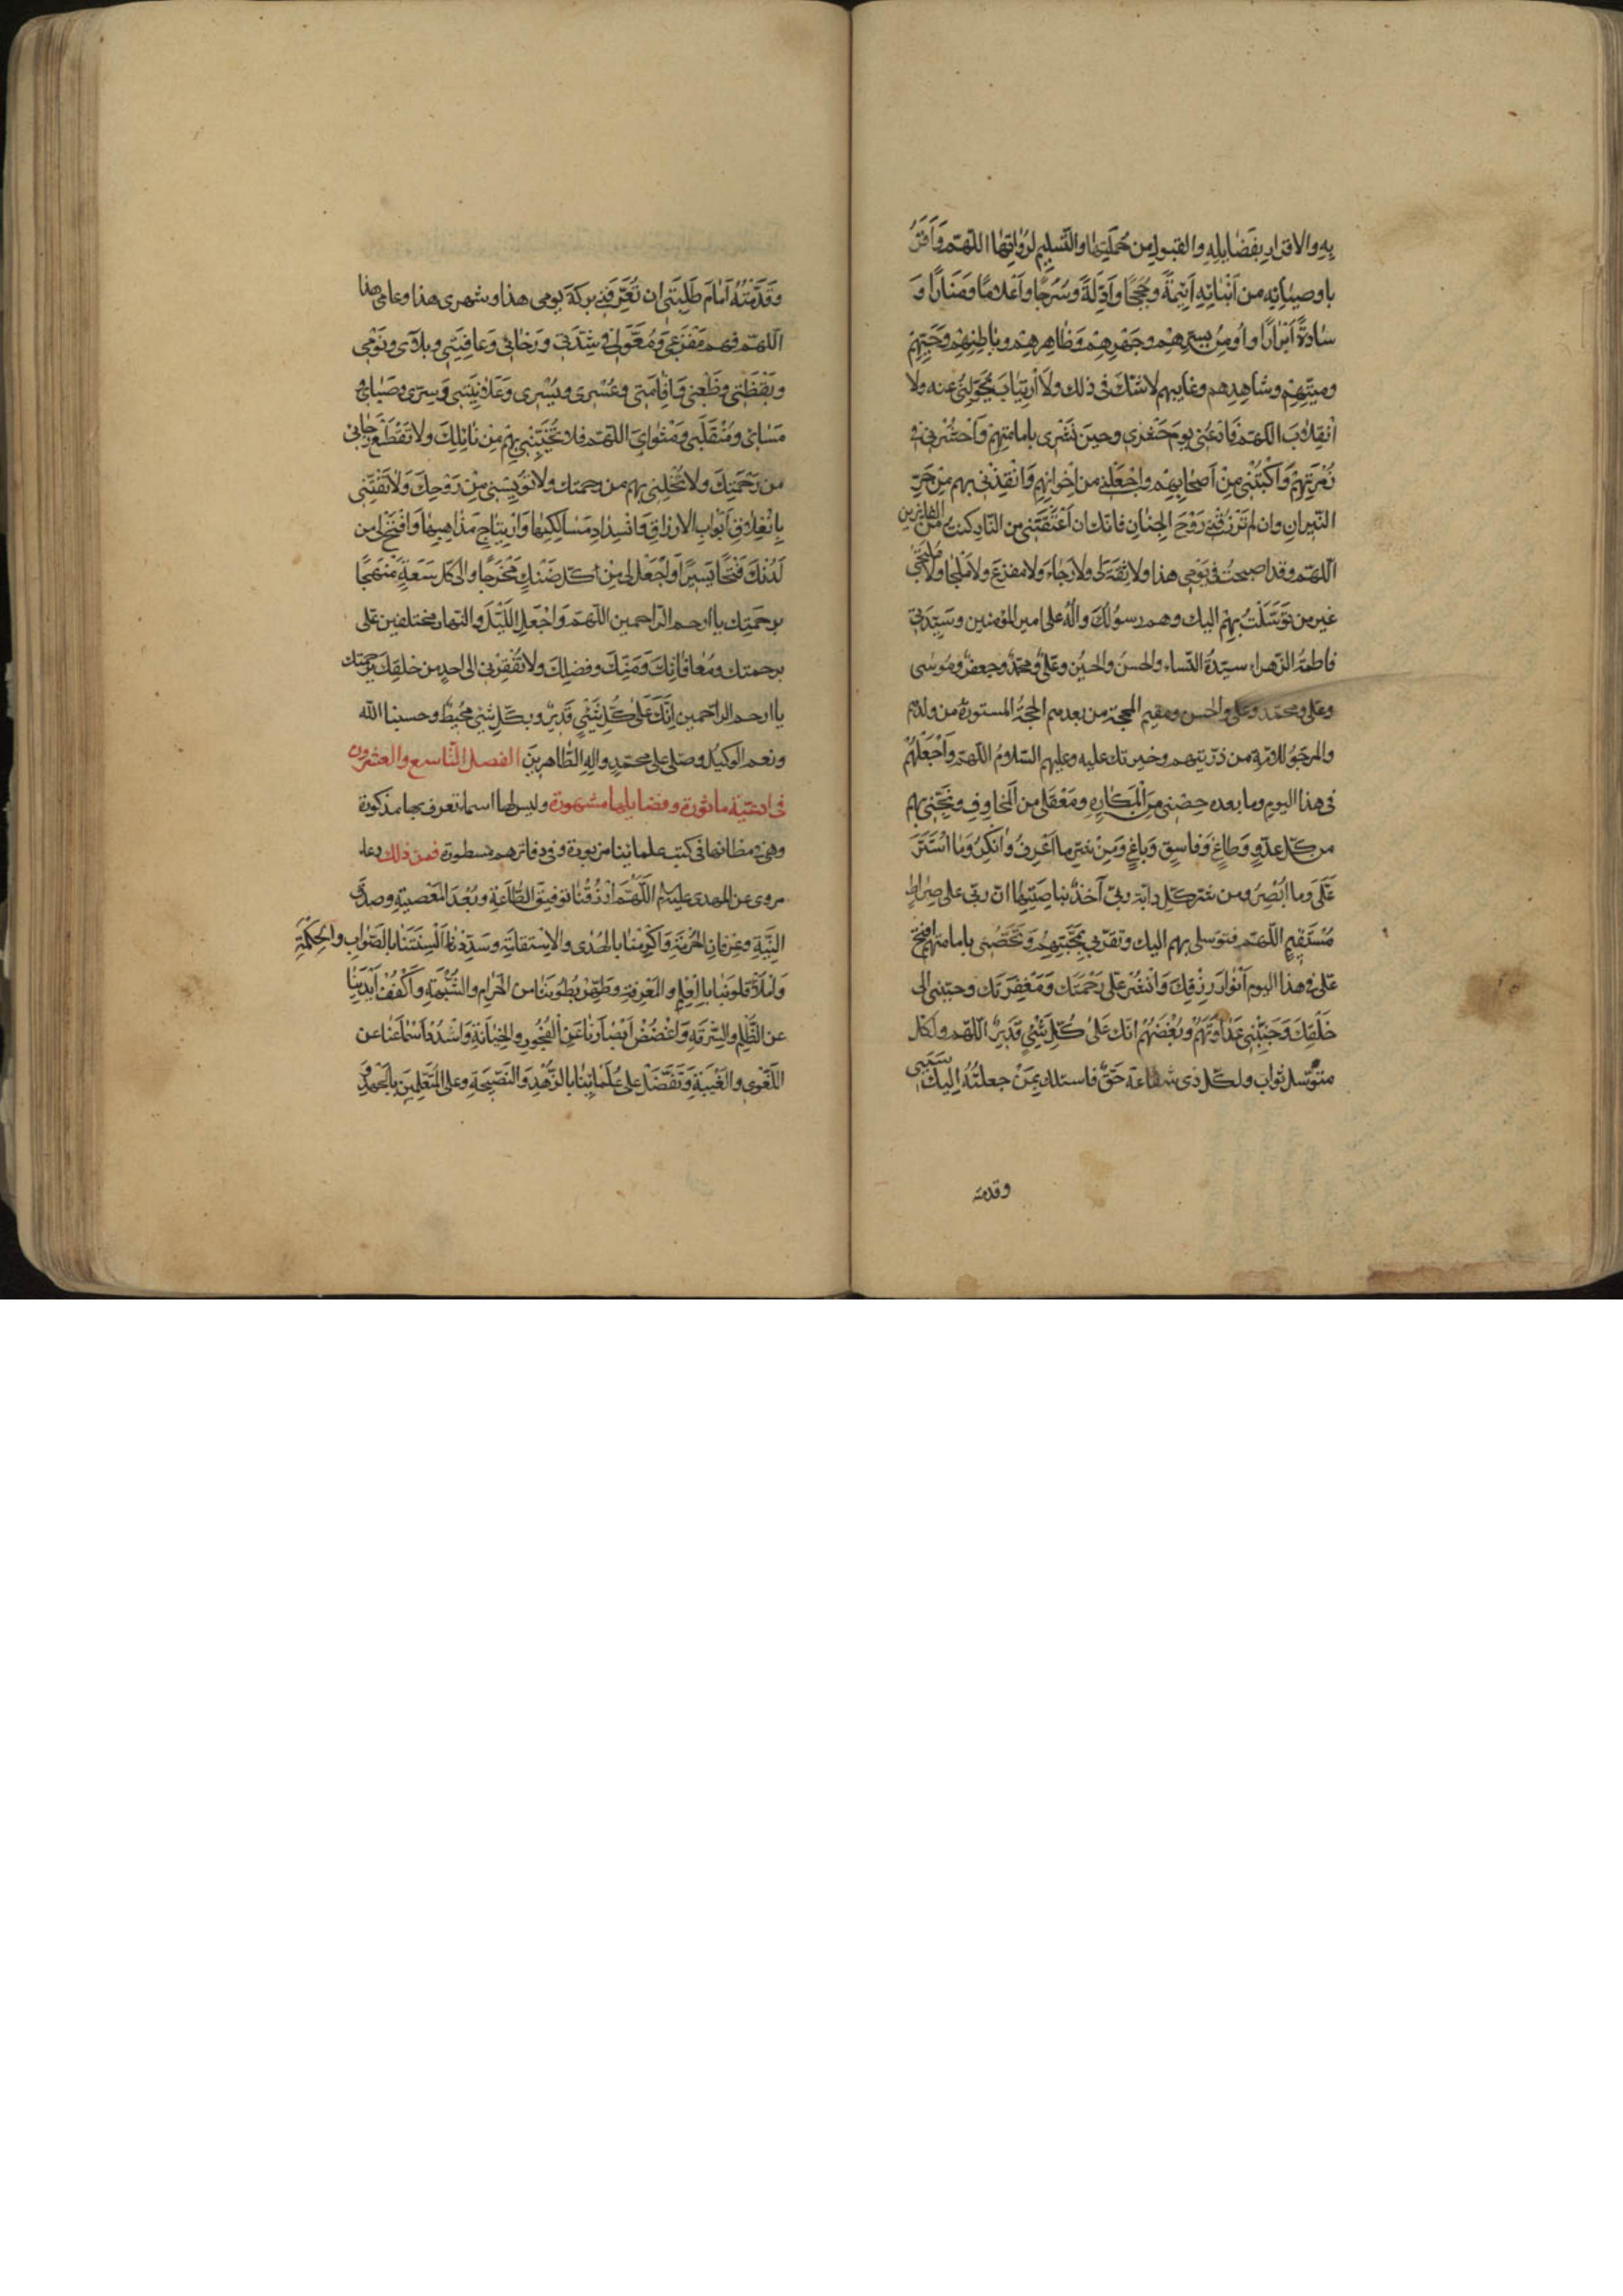 به والاقرار بفَضَايله والقبول من حَمَلَتِها والتَّسليم لرُوَاتِها اللهمّ وَأُقِرُّ
باوصيائِه من اَبْنائِهِ اَئِمَّةً وحُجَجًا وَاَدِلَّةً وسُرُجًا واَعْلامًا ومَنارًا وَ
سادةً اَبْرارًا واُومِنُ بسِرِّهِمْ وجَهْرِهِمْ وَظاهِرِهِمْ وباطِنِهِمْ وحَيِّهِمْ
وميِّتِهِمْ وشاهِدِهم وغايبهم لا شَكَّ فى ذلك ولَا ارْتِيَابَ يُحَوِّلُنى عنه ولا
انْقِلابَ اللهمّ فَادْعُنى يومَ حَشْرى وحينَ نَشْرى بامامتِهِمْ وَاحْشُرْنى فى
زُمْرَتِهِمْ وَاكْتُبْنى مِنْ اَصْحابِهِمْ واجْعَلنى من اِخْوانِهِمْ وَانْقِذْنى بهم مِنْ حَرِّ
النّيرانِ وان لم تَرْزُقْنى رَوْحَ الجِنانِ فانّك ان اَعْتَقْتَنى من النّار كنتُ من الفايزين
اللهمّ وقد اصبحتُ فى يَوْمى هذا ولا ثِقَةَ لى ولا رَجاءَ ولا مفزعَ ولا مَلْجأَ ولا مُلْتَجَأَ
غير من تَوَسَّلْتُ بهم اليك وهم رسولُكَ وآلُهُ على امير المؤمنين وسَيِّدَتى
فاطمةُ الزّهراء سيّدةُ النّساء والحسنُ والحسينُ وعلىٌّ ومحمّدٌ وجعفرٌ ومُوسى
وعلى ومحمّد وعلى والحسن ومقيم المحجّة من بعدهم الحجّةُ المستورةُ من ولدهم
والمرجوُّ للامّة من ذرّيتهم وخيرتك عليه وعليهم السّلامُ اللهمّ وَاجْعَلْهُمْ
فى هذا اليوم وما بعده حِصْنى من المَكارِهِ ومَعْقلى من المَخاوِفِ ونَجِّنى بهم
من كلّ عدوٍّ وَطاغٍ وَفاسِقٍ وَباغٍ وَمِنْ شرّ ما اَعْرِفُ واُنكِرُ وَمَا اسْتَتَرَ
عَلَىَّ وما اُبْصِرُ ومن شرّ كلّ دابّة ربّى آخذٌ بناصِيَتِها انّ ربّى على صِراطٍ
مُسْتَقيمٍ اللهمّ فتوسّلى بهم اليك وتقرّبى بمَحَبَّتِهِمْ وَتَحَصُّنى بامامتهم افتح
عَلَىَّ فى هذا اليوم اَبْوابَ رِزْقِكَ وَانْشُرْ عَلَىَّ رَحْمَتَكَ وَمَغْفِرَتَكَ وحبّبنى الى
خَلْقِكَ وَجَنِّبْنى عَداوَتَهُمْ وبُغْضَهُمْ انّك عَلى كُلِّ شَىْءٍ قَدِيرٌ اللهمّ ولكلّ
متوسّل ثواب ولكلّ ذى شفاعة حَقٌّ فاسئلك بمَنْ جعلتُهُ اليك سَبَبى
وقدمته
وَقَدَّمْتُهُ اَمامَ طَلِبَتى ان تُعَرِّفَنى بركةَ يومى هذا وشهرى هذا وعامى هذا
اللهمّ فهم مَفْزَعى وَمُعَوَّلى فى شِدَّتى ورَخائى وَعافِيَتى وبلائى ونَوْمى
ويَقْظَتى وظَعْنى وَاِقامَتى وعُسْرى ويُسْرى وعَلانِيَتى وسِرّى وصَباحى و
مَسائى ومُنْقَلَبى ومَثْواىَ اللهمّ فلا تُخَيِّبْنى بهِمْ مِن نائِلِكَ ولا تَقْطَعْ رَجائى
من رَحْمَتِكَ ولا تُخْلِنى بهم من رحمتك ولا تُؤْيِسْنى مِنْ رَوْحِكَ وَلا تَفْتِنّى
بِانْغِلاقِ اَبْوابِ الارزاقِ وَانْسِدادِ مَسالِكِها وَارْتِتاجِ مَذاهِبِها وَافْتَحْ لى من
لَدُنْكَ فَتْحًا يَسيرًا وَاجْعَلْ لى مِنْ كلّ ضَنْكٍ مَخْرَجًا والى كلّ سَعَةٍ مَنْهَجًا
برحمَتِك يا ارحم الرّاحمين اللهمّ وَاجْعَلِ اللَّيْلَ والنّهار مختلفين علىّ
برحمتك ومُعافاتِكَ وَمَنِّكَ وفضلِكَ ولا تُفْقِرْنى الى احدٍ من خلقِكَ برحمتك
يا ارحم الراحمين اِنّكَ عَلى كُلِّ شَىْءٍ قَديرٌ وبكلّ شىءٍ مُحيطٌ وحسبنا الله
ونعم الوكيل وصلى على محمّدٍ واله الطّاهرين الفصل التّاسع والعشرون
فى ادعيّة ماثورة وفضايلها مشهورة وليس لها اسما تعرف بها مذكورة
وهى ومظانّها فى كتب علمائنا مزبورة وفى دفاترهم مسطورة فمن ذلك دعاء
مروى عن المهدى عليه السلم اَللّهُمَّ ارْزُقْنا توفيقَ الطّاعَةِ وبُعْدَ المَعْصِيَةِ وصدقَ
النِّيَّةِ وعِرْفانَ الحُرْمَةِ وَاَكْرِمْنا بالهُدى والاِسْتِقامَةِ وسَدِّدْ اَلْسِنَتَنا بالصَّوابِ والحِكْمَةِ
وَامْلَأْ قلوبَنا بالعِلْمِ والمَعْرِفَةِ وطَهِّرْ بُطُونَنا من الحَرامِ والشُّبْهَةِ وَاكْفُفْ اَيْدِيَنا
عن الظُّلْمِ والسَّرِقَةِ وَاغْضُضْ اَبْصارَنا عَنِ الفُجُورِ والخِيانَةِ وَاسْدُدْ اَسْماعَنا عن
اللَّغْوِ والغِيبَةِ وَتَفَضَّلْ على عُلَمائِنا بالزُّهْدِ وَالنَّصيحَةِ وعلى المُتَعَلِّمينَ بالجُهْدِ و